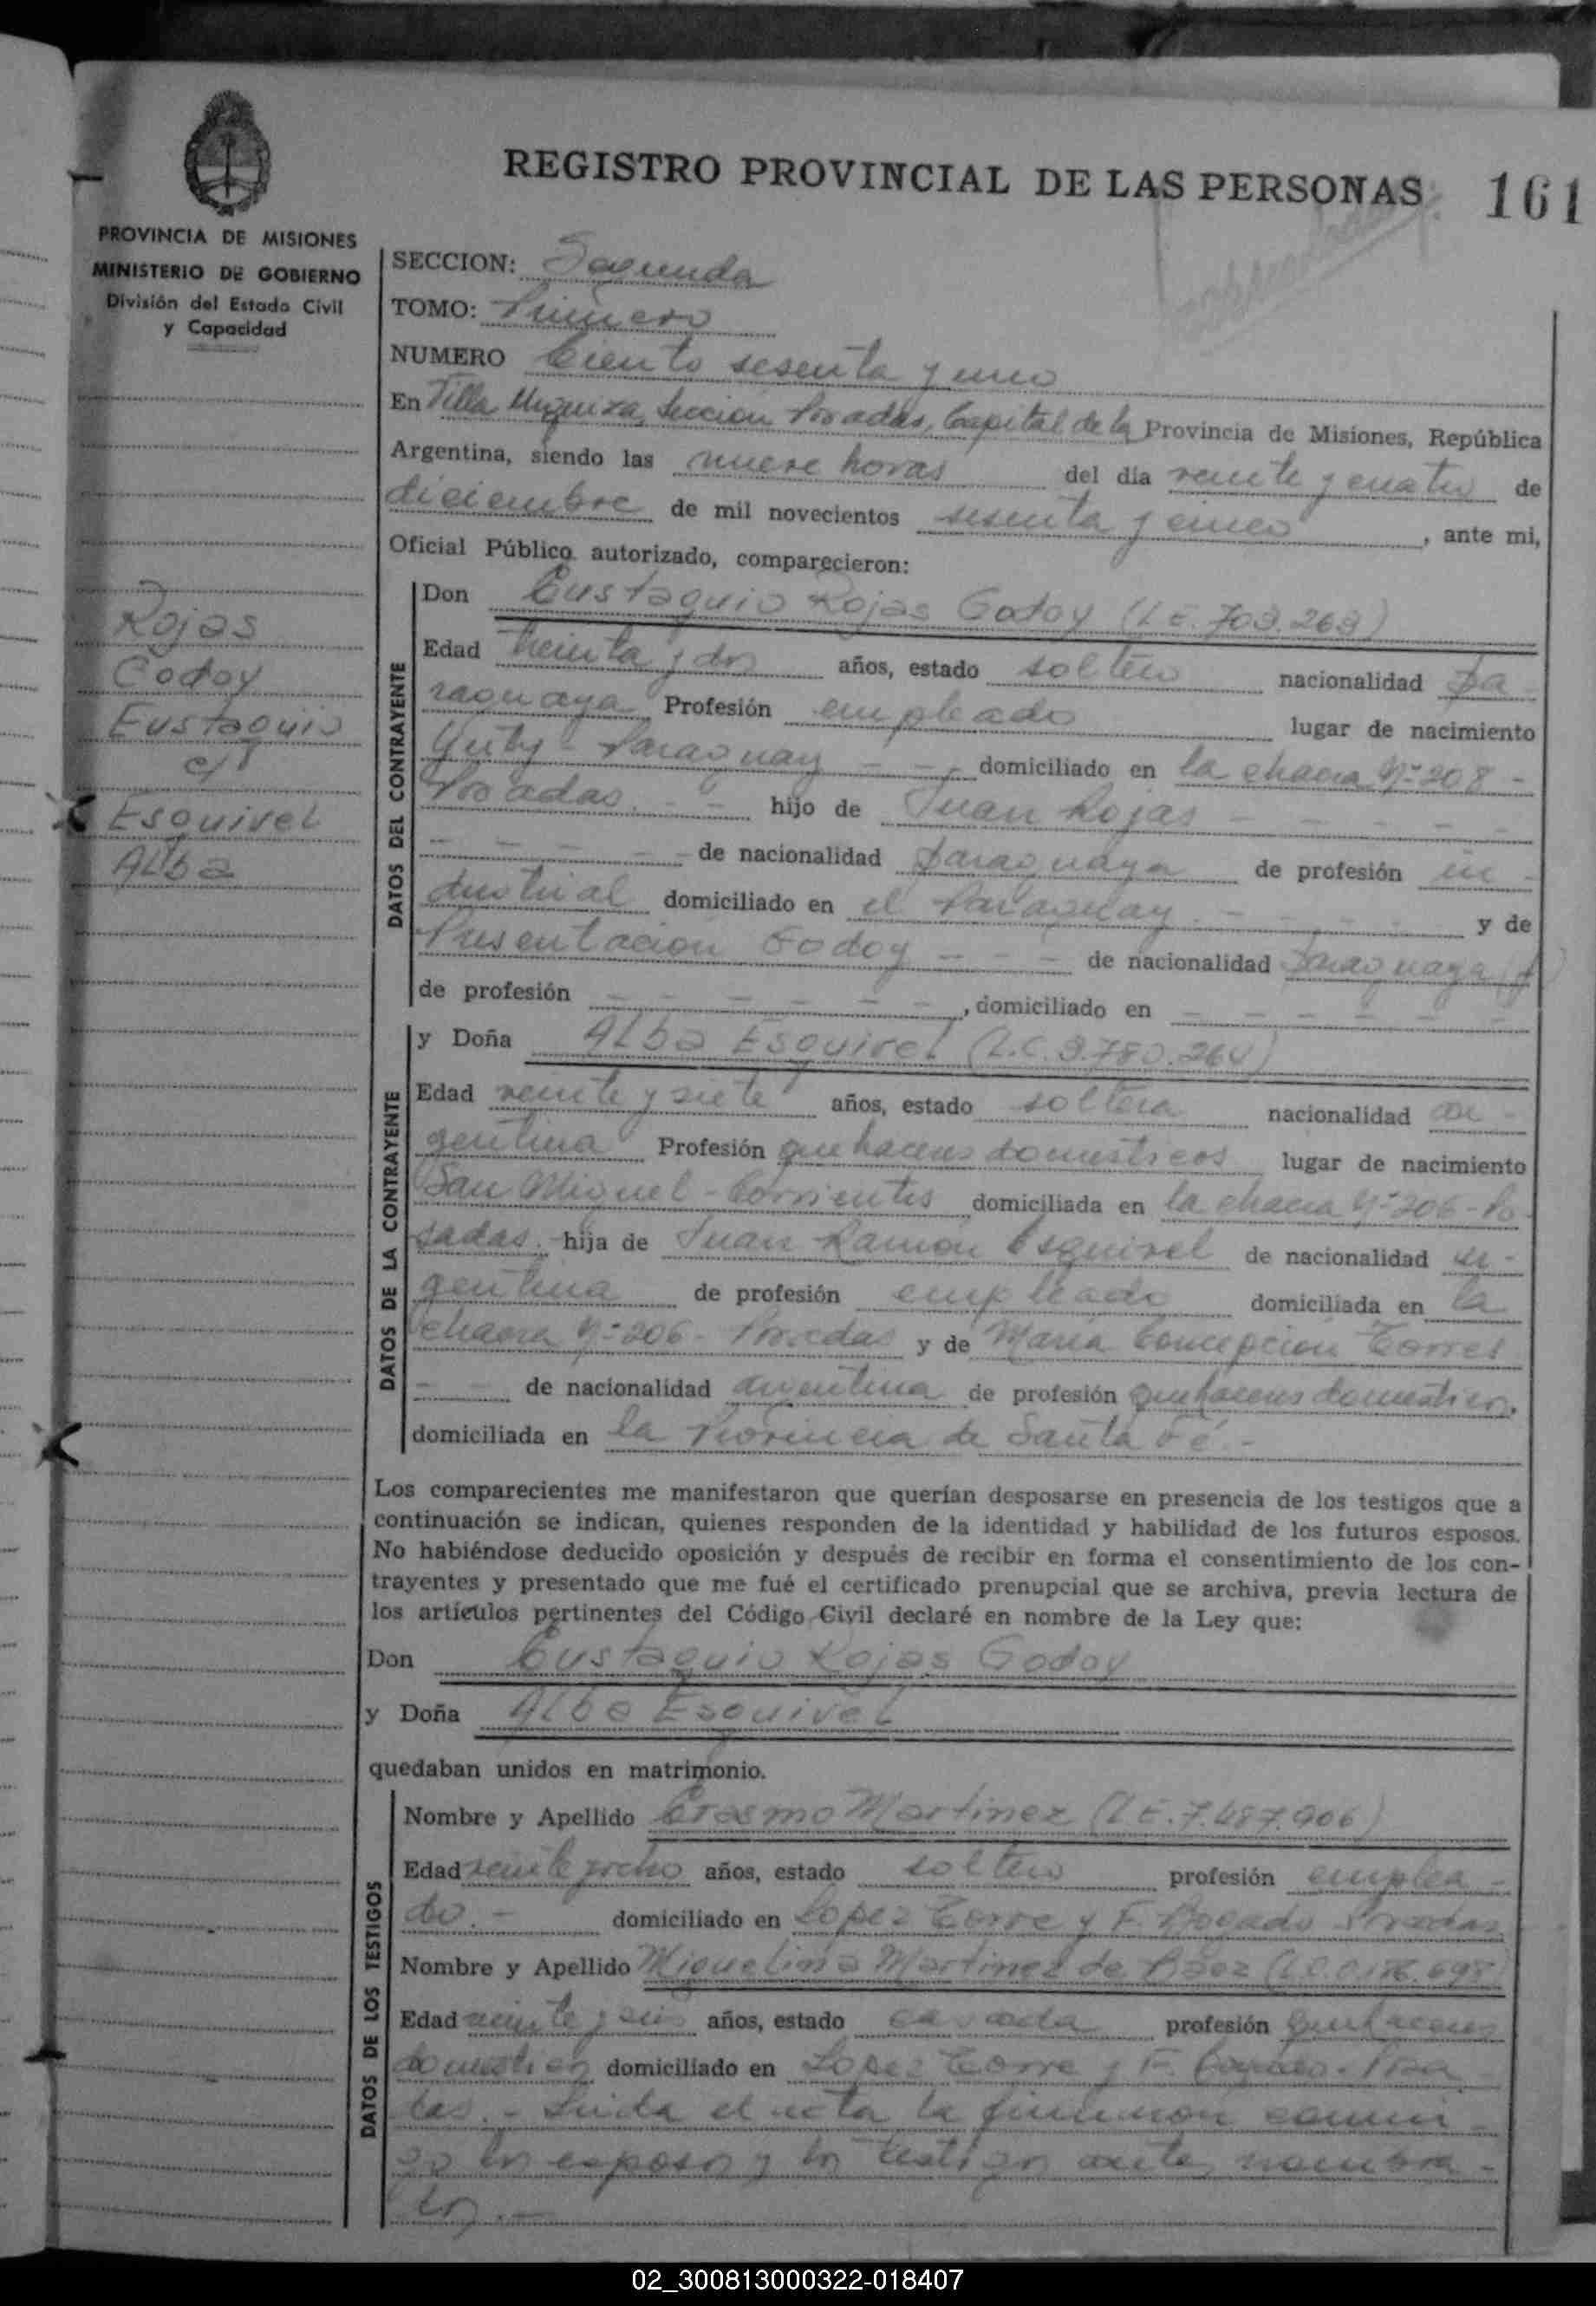 REGISTRO PROVINCIAL DE LAS PERSONAS 161
PROVINCIA DE MISIONES
MINISTERIO DE GOBIERNO
División del Estado Civil
y Capacidad
SECCION: Segunda
TOMO: Primero
NUMERO Ciento sesenta y uno
En Villa Urquiza, Seccion Posadas, Capital de la Provincia de Misiones, República
Argentina, siendo las nueve horas del día veinte y cuatro de
diciembre de mil novecientos sesenta y cinco, ante mi,
Oficial Público autorizado, comparecieron:
Rojas
Godoy
Eustaquio
c/
Esquivel
Alba
DATOS DEL CONTRAYENTE
Don Eustaquio Rojas Godoy (L E. 703.269)
Edad treinta y dos años, estado soltero nacionalidad pa-
raguaya Profesión empleado lugar de nacimiento
Yuty - Paraguay - - , domiciliado en la chacra Nº 208 -
Posadas. - - hijo de Juan Rojas - - - - - -
- - - - - de nacionalidad paraguaya de profesión in-
dustrial domiciliado en el Paraguay. - - - - - y de
Presentacion Godoy - - - de nacionalidad paraguaya (f)
de profesión - - - - - - , domiciliado en - - - - - -
DATOS DE LA CONTRAYENTE
y Doña Alba Esquivel (L.C. 3.780.264)
Edad veinte y siete años, estado soltera nacionalidad ar-
gentina Profesión quehaceres domesticos lugar de nacimiento
San Miguel - Corrientes domiciliada en la chacra Nº 206 - Po-
sadas. - hija de Juan Ramon Esquivel de nacionalidad ar-
gentina de profesión empleado domiciliada en la
chacra Nº 206 - Posadas y de Maria Concepcion Torres
- - de nacionalidad argentina de profesión quehaceres domesticos,
domiciliada en la Provincia de Santa Fé. -
Los comparecientes me manifestaron que querían desposarse en presencia de los testigos que a
continuación se indican, quienes responden de la identidad y habilidad de los futuros esposos.
No habiéndose deducido oposición y después de recibir en forma el consentimiento de los con-
trayentes y presentado que me fué el certificado prenupcial que se archiva, previa lectura de
los artículos pertinentes del Código Civil declaré en nombre de la Ley que:
Don Eustaquio Rojas Godoy
y Doña Alba Esquivel
quedaban unidos en matrimonio.
DATOS DE LOS TESTIGOS
Nombre y Apellido Erasmo Martinez (L E. 7.487.906)
Edad veinte y ocho años, estado soltero profesión emplea-
do. - domiciliado en Lopez Torre y F. Bogado Posadas
Nombre y Apellido Miguelina Martinez de Báez
Edad veinte y seis años, estado casada profesión quehaceres
domesticos domiciliado en Lopez Torre y F. Bogado - Posa-
das. - Leida el acta la firmaron conmi-
go los esposos y los testigos antes nombra-
dos. -
02_300813000322-018407